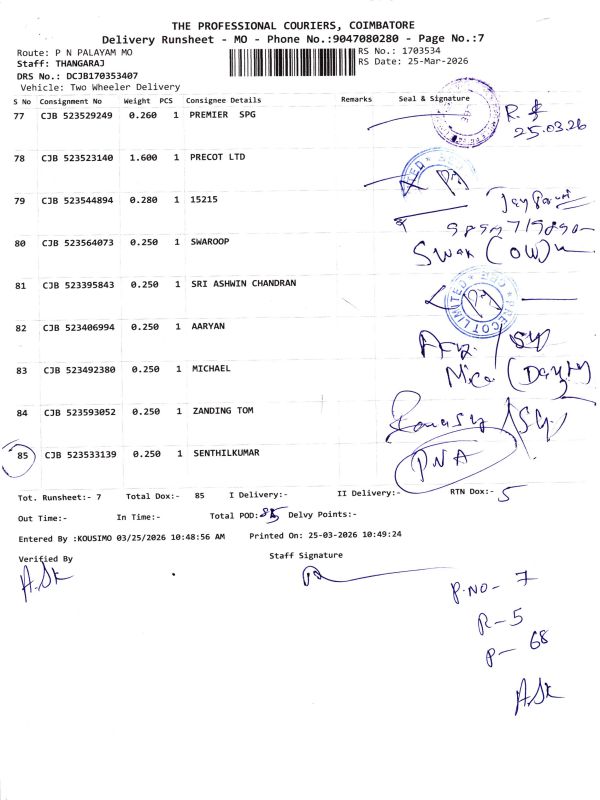 THE PROFESSIONAL COURIERS, COIMBATORE
Delivery Runsheet - MO - Phone No.:9047080280 - Page No.:7
Route: P N PALAYAM MO
RS No.: 1703534
Staff: THANGARAJ
RS Date: 25-Mar-2026
DRS No.: DCJB170353407
Vehicle: Two Wheeler Delivery
S No Consignment No Weight PCS Consignee Details Remarks Seal & Signature
77 CJB 523529249 0.260 1 PREMIER SPG
25.03.26
78 CJB 523523140 1.600 1 PRECOT LTD
79 CJB 523544894 0.280 1 15215
80 CJB 523564073 0.250 1 SWAROOP
81 CJB 523395843 0.250 1 SRI ASHWIN CHANDRAN
PRECOT LIMITED
82 CJB 523406994 0.250 1 AARYAN
83 CJB 523492380 0.250 1 MICHAEL
84 CJB 523593052 0.250 1 ZANDING TOM
85 CJB 523533139 0.250 1 SENTHILKUMAR PNA
Tot. Runsheet:- 7 Total Dox:- 85 I Delivery:- II Delivery:- RTN Dox:- 5
Out Time:- In Time:- Total POD:- 85 Delvy Points:-
Entered By :KOUSIMO 03/25/2026 10:48:56 AM Printed On: 25-03-2026 10:49:24
Verified By Staff Signature
P.NO- 7
R- 5
P- 68